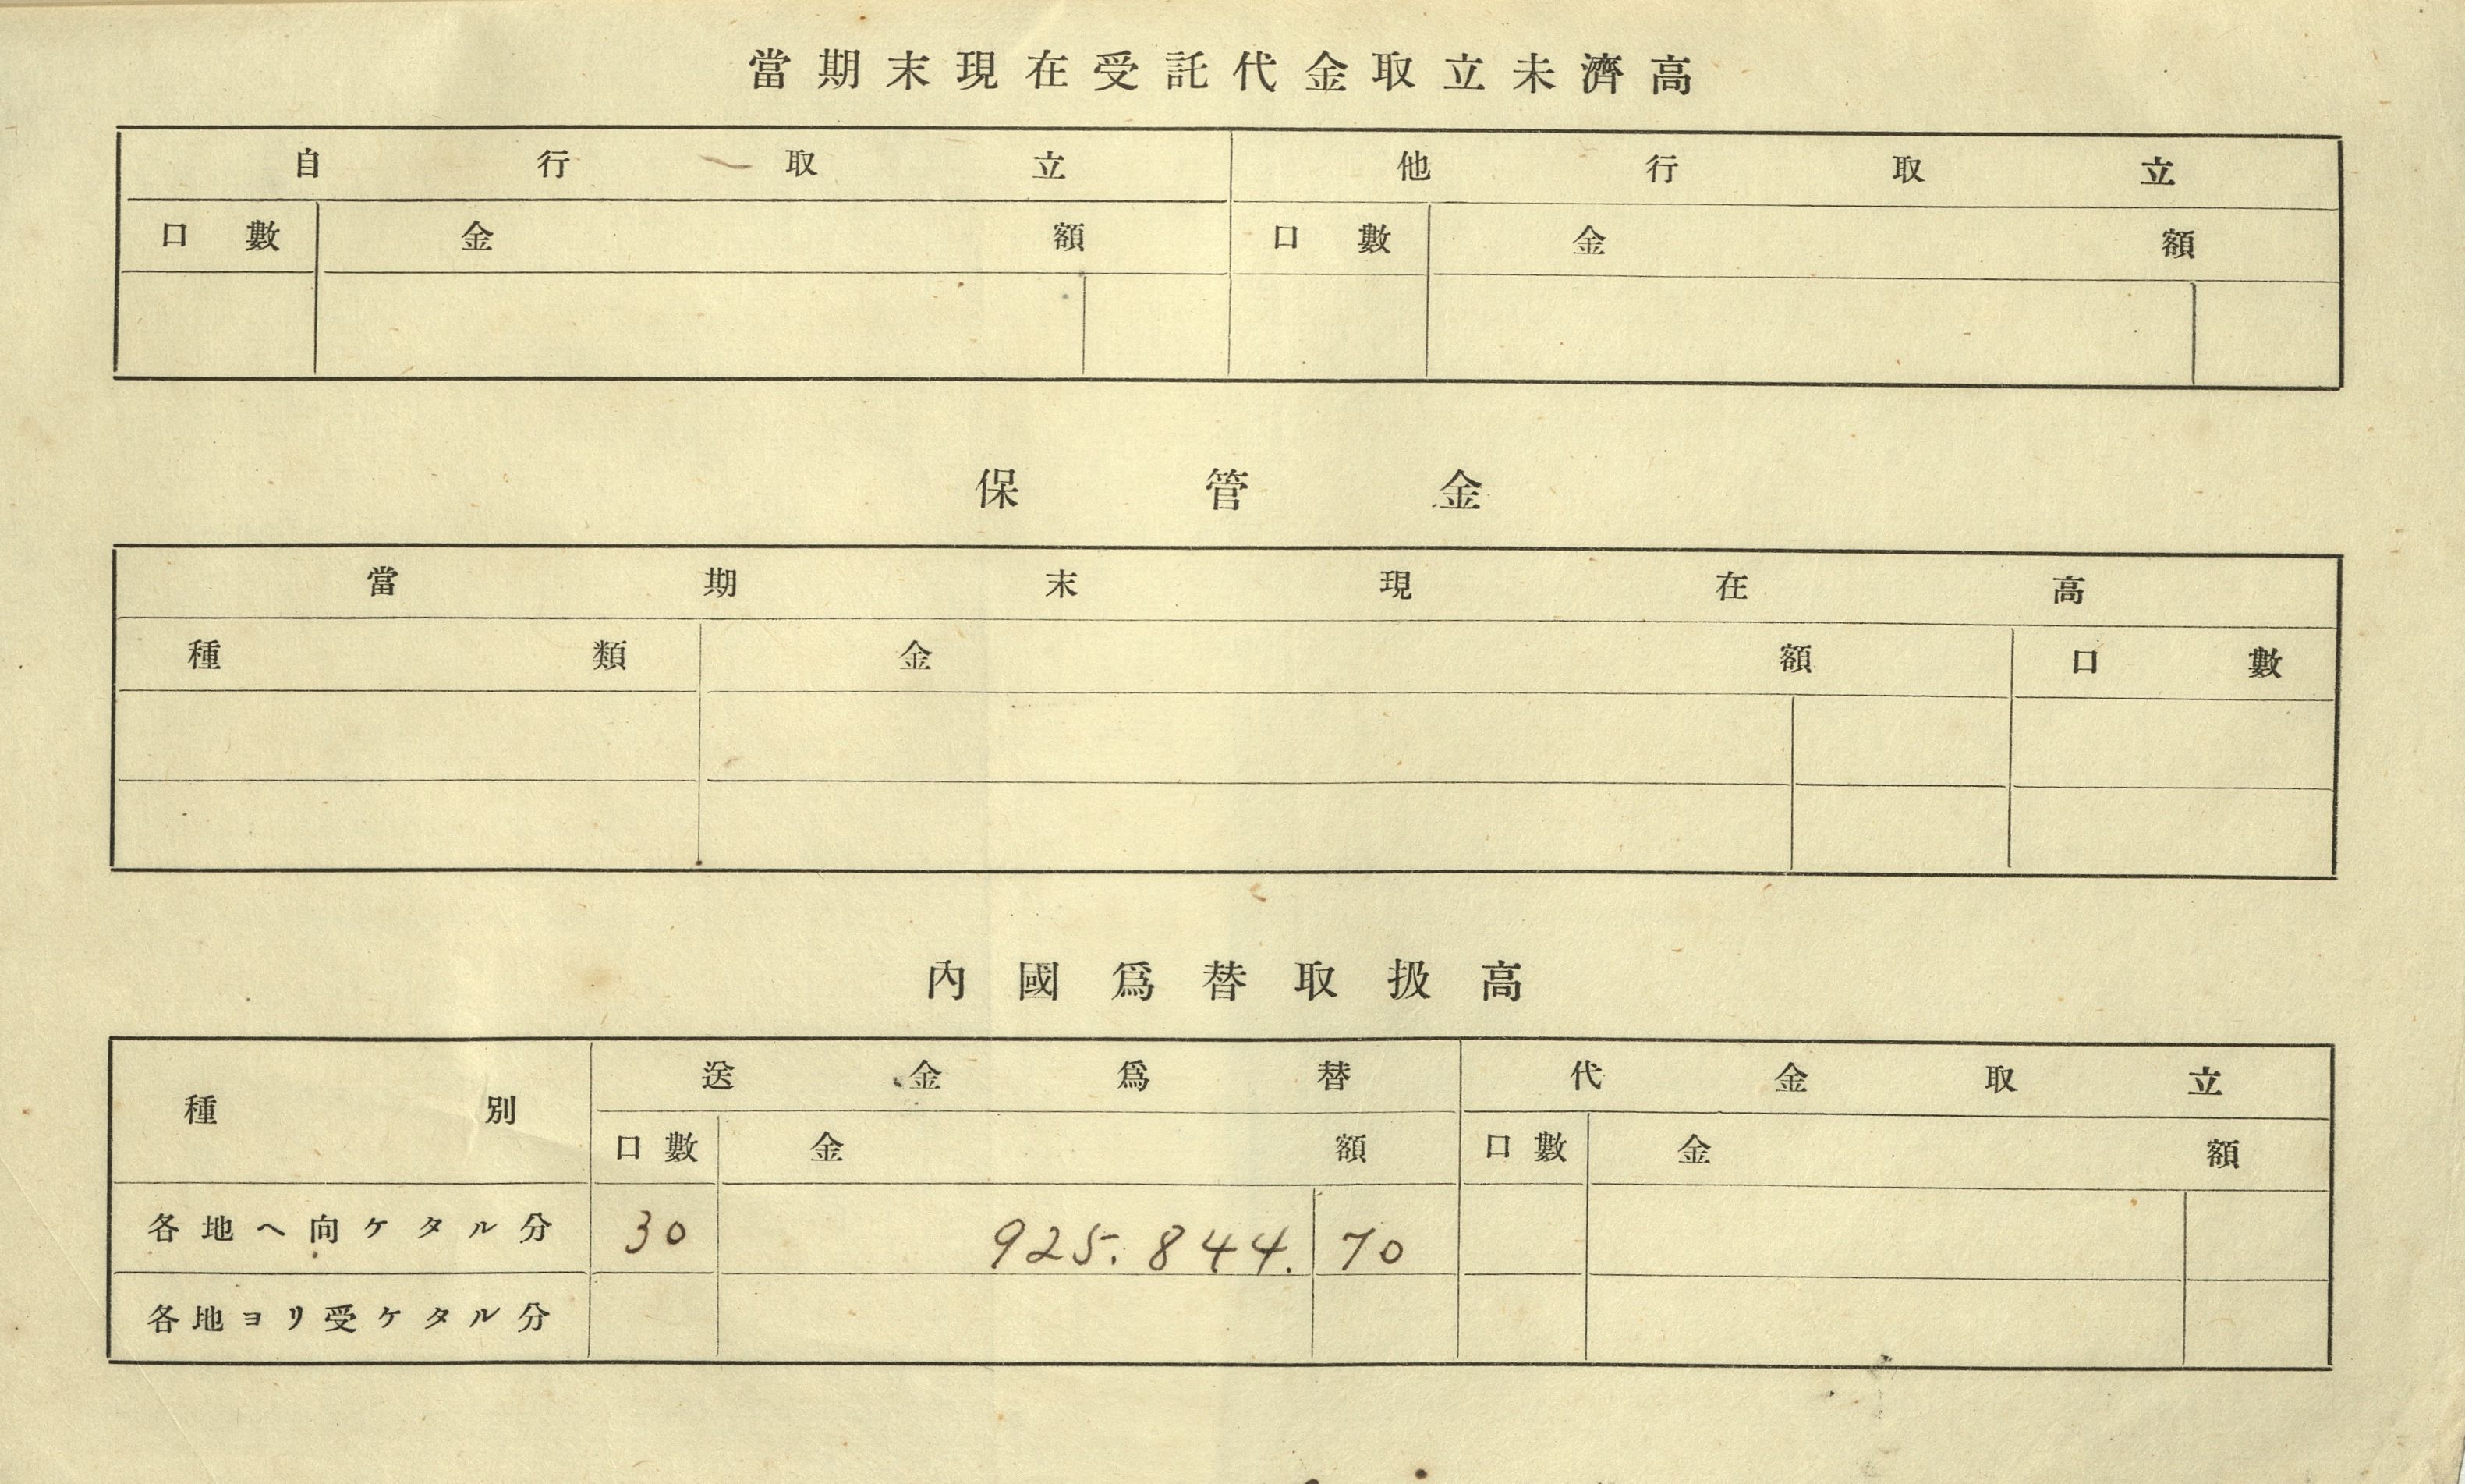 當期末現在受託代金取立未濟高
自行取立 他行取立
口數 金額 口數 金額
保管金
當期末現在高
種類 金額 口數
內國爲替取扱高
種別 送金爲替 代金取立
口數 金額 口數 金額
各地ヘ向ケタル分 30 925.844. 70
各地ヨリ受ケタル分